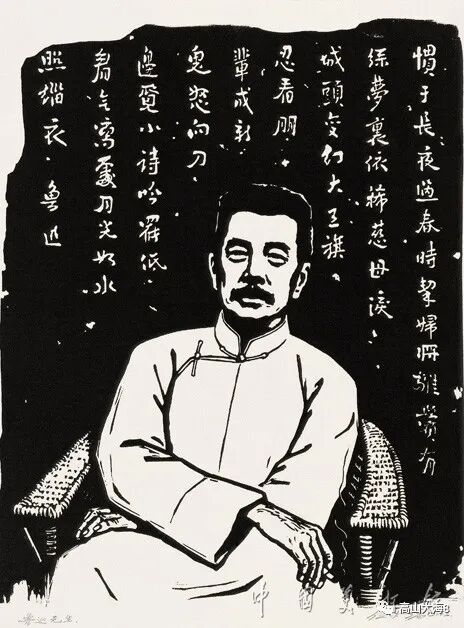 慣于長夜過春時挈婦將雛鬢有
絲夢裏依稀慈母淚
城頭變幻大王旗
忍看朋
輩成新
鬼怒向刀
邊覓小詩吟罷低
眉无寫處月光如水
照緇衣 魯迅
魯迅先生
中国美
高山大海8